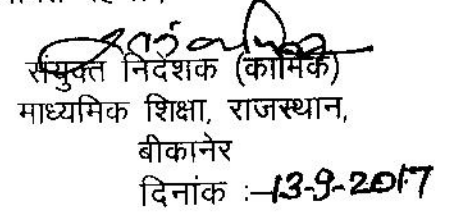 संयुक्त निदेशक (कार्मिक)
माध्यमिक शिक्षा, राजस्थान,
बीकानेर
दिनांक :-13-9-2017